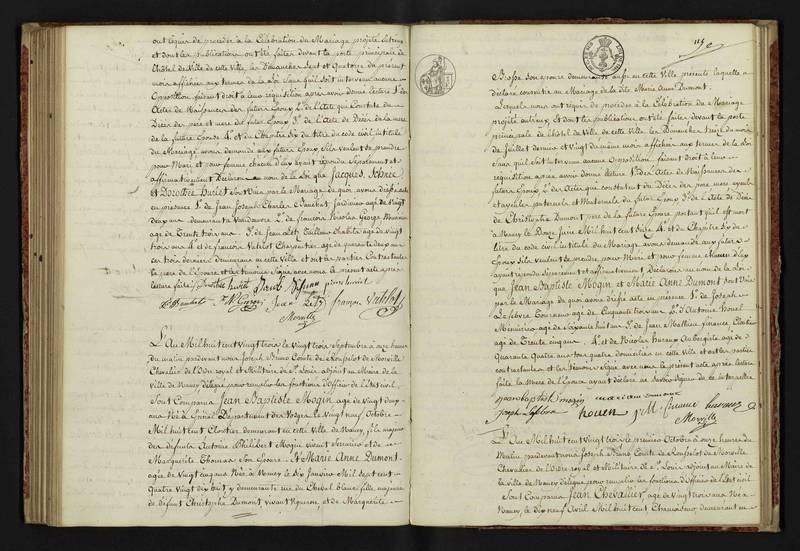 ont requis de procéder à la Célébration du Mariage projeté entr'eux
et dont les publications ont été faites devant la porte principale de
l'hôtel de Ville de cette Ville, les Dimanches Sept et Quatorze du présent
mois affichées aux termes de la Loi sans qu'il soit intervenu aucune
Opposition faisant droit à leur réquisition après avoir donné lecture 1° des
Actes de Naissances des futurs Epoux 2° de l'Acte qui Constate le
Décès des père et mère du futur Epoux 3° de l'Acte de Décès de la mère
de la future Epouse 4° et du Chapitre Six du titre du code civil intitulé
du Mariage avons demandé aux futurs Epoux s'ils veulent se prendre
pour Mari et pour femme chacun d'eux ayant répondu Séparément et
affirmativement Déclarons au nom de la Loi que Jacques
et Dorothée Huriet sont Unis par le Mariage de quoi avons dressé acte
en présence 1° de Jean Joseph Charles Jardinier agé de Vingt
deux ans demeurant à Vandœuvre 2° de françois Nicolas George
agé de Trente trois ans 3° de Jean Tailleur d'habits agé de Vingt
trois ans 4° et de françois Vatelot Charpentier agé de quarante deux ans
ces trois derniers demeurant en cette Ville et ont les parties Contractantes
le père de l'Epouse et les témoins Signé avec nous le présent acte après
lecture faite
Dorothée huriet
Jean françois Vatelot
Morville
L'An Mil huit cent Vingt trois le Vingt trois Septembre à onze heures
du matin pardevant nous Joseph Bruno Comte de Morville
Chevalier de l'Ordre royal et Militaire de St Louis adjoint au Maire de la
Ville de Nancy délégué pour remplir les fonctions d'officier de l'Etat civil
Sont Comparus Jean Baptiste Mogin agé de Vingt deux
ans Né à Epinal Département des Vosges le Vingt neuf Octobre
Mil huit cent Cloutier demeurant en cette Ville de Nancy, fils majeur
des défunts Antoine Philibert Mogin vivant Serrurier et de
Marguerite Thomas Son Epouse. Et Marie Anne Dumont
agée de Vingt cinq ans Née à Nancy le dix Janvier Mil Sept cent
Quatre Vingt dix huit y demeurante rue du Cheval blanc fille majeure
de défunt Christophe Dumont vivant Vigneron, et de Marguerite
115
Brosse son épouse demeurante aussi en cette Ville présente laquelle a
déclaré consentir au Mariage de la dite Marie Anne Dumont.
Lesquels nous ont requis de procéder à la Célébration du Mariage
projeté entr'eux, et dont les publications ont été faites devant la porte
principale de l'hôtel de Ville de cette Ville les Dimanches Treize du mois
de Juillet dernier et Vingt du même mois affichées aux termes de la Loi
Sans qu'il soit intervenu aucune Opposition faisant droit à leur
réquisition après avoir donné lecture 1° des Actes de Naissances des
futurs Epoux, 2° des Actes qui constatent le Décès des père mère ayeuls
et ayeules paternels et Maternels du futur Epoux 3° de l'Acte de Décès
de Christophe Dumont père de la future Epouse portant qu'il est mort
à Nancy le Douze Juin Mil huit cent Seize 4° et du Chapitre Six du
titre du code civil intitulé du Mariage avons demandé aux futurs
Epoux s'ils veulent se prendre pour Mari et pour femme chacun d'eux
ayant répondu Séparément et affirmativement Déclarons au nom de la Loi
que Jean Baptiste Mogin et Marie Anne Dumont sont Unis
par le Mariage de quoi avons dressé acte en présence 1° de Joseph
Lefebvre Tourneur agé de Cinquante trois ans 2° d'Antoine
Menuisier agé de Soixante huit ans 3° de Jean Mathieu Cloutier
agé de Trente cinq ans 4° et de Nicolas Aubergiste agé de
Quarante Quatre ans tous quatre domiciliés en cette Ville et ont les parties
contractantes et les témoins Signé avec nous le présent acte après lecture
faite la Mère de l'Epouse ayant déclaré ne Savoir Signer de ce interpellée
jean baptiste mogin marie anne dumont
joseph Lefebvre
Morville
L'An Mil huit cent Vingt trois le premier Octobre à onze heures du
Matin pardevant nous Joseph Bruno Comte de Morville
Chevalier de l'Ordre royal et Militaire de St Louis adjoint au Maire de
la Ville de Nancy délégué pour remplir les fonctions d'officier de l'Etat civil
Sont Comparus Jean Chevallier agé de Vingt trois ans Né à
Nancy, le dix neuf Avril Mil huit Cent demeurant en